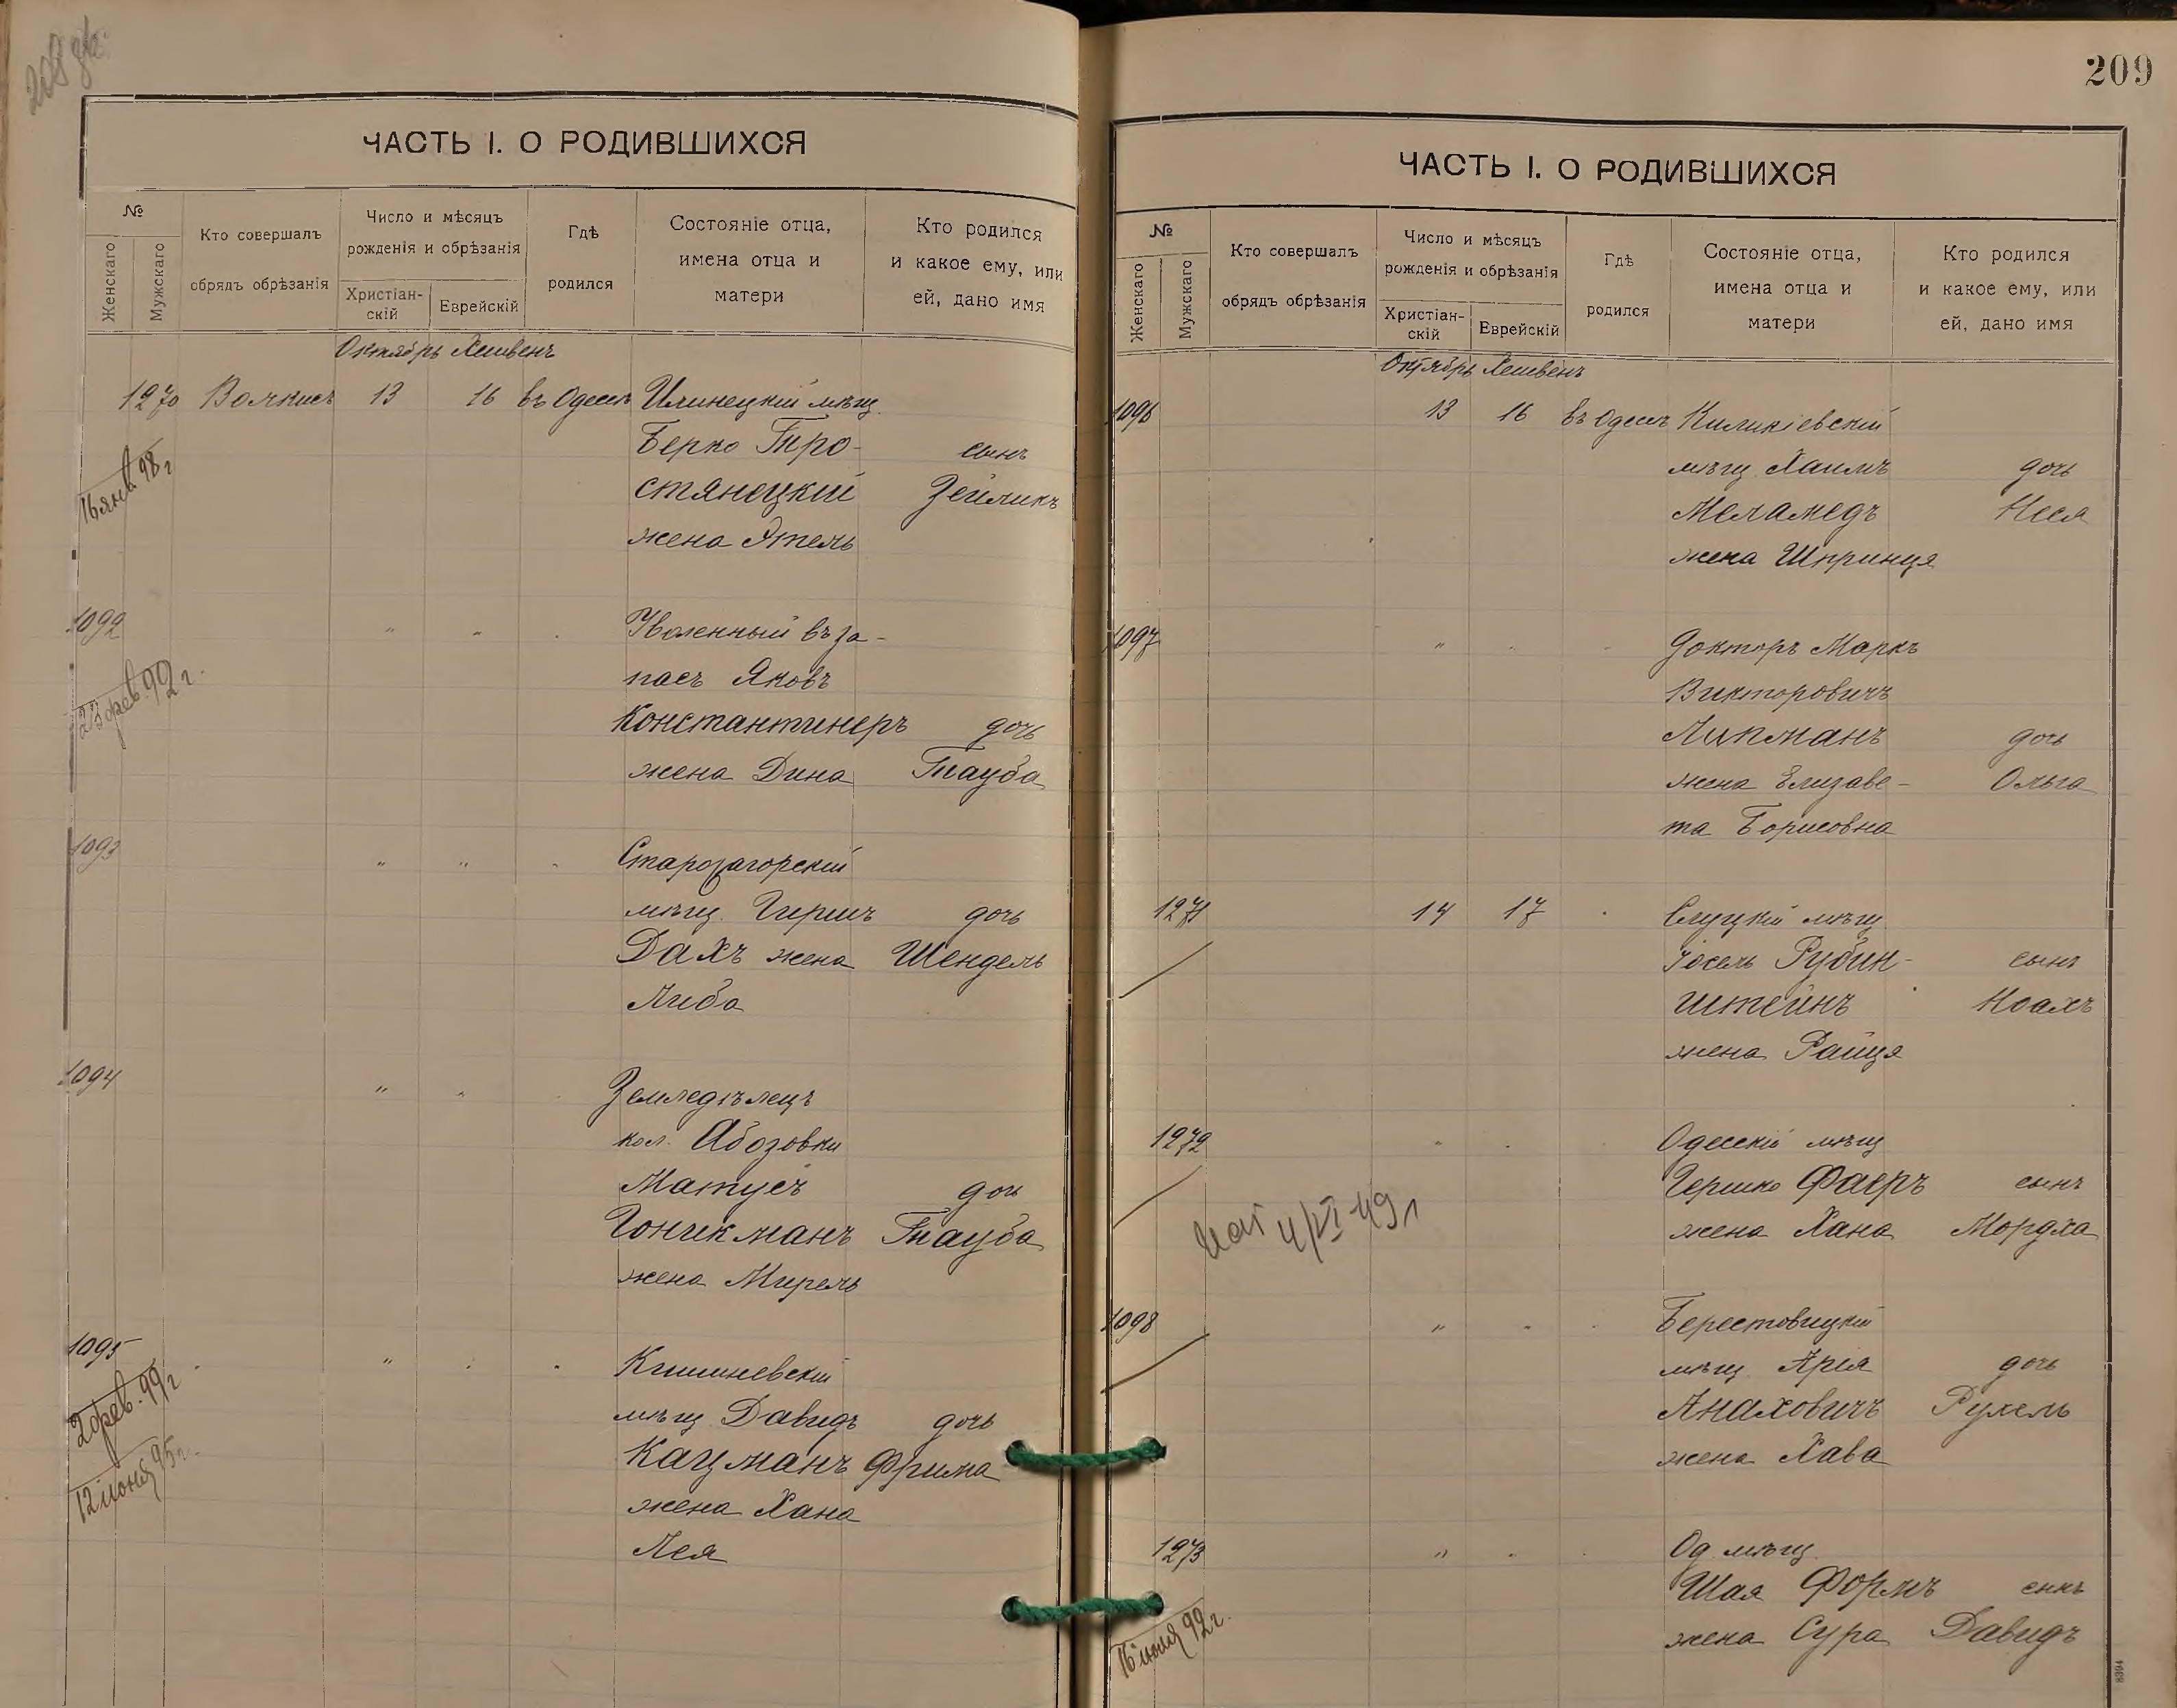 208 об.
ЧАСТЬ I. О РОДИВШИХСЯ
№
Женскаго
Мужскаго
Кто совершалъ
обрядъ обрѣзанія
Число и мѣсяцъ
рожденія и обрѣзанія
Христіан-
скій
Еврейскій
Гдѣ
родился
Состояніе отца,
имена отца и
матери
Кто родился
и какое ему, или
ей, дано имя
Октябрь Хешвенъ
1270 13 16 въ Одессѣ Илинецкій мѣщ.
Берко Тро- сынъ
16 янв. 98 г
стянецкій Зейликъ
жена Этель
1092 " " Уволенный въ за-
пасъ Яковъ
23 фев. 92 г.
Константинеръ дочь
жена Дина Тауба
1093 " " Старозагорскій
мѣщ. Гершъ дочь
Дахъ жена Шендель
Либа
1094 " " Земледѣлецъ
кол. Абозовки
Матусъ дочь
Гоникманъ Тауба
жена Мирель
1095 " " Кишиневскій
2 фев. 99 г
мѣщ. Давидъ дочь
12 июня 95 г.
Кацманъ Фрима
жена Хана
Лея
209
ЧАСТЬ I. О РОДИВШИХСЯ
№
Женскаго
Мужскаго
Кто совершалъ
обрядъ обрѣзанія
Число и мѣсяцъ
рожденія и обрѣзанія
Христіан-
скій
Еврейскій
Гдѣ
родился
Состояніе отца,
имена отца и
матери
Кто родился
и какое ему, или
ей, дано имя
Октябрь Хешвенъ
1096 13 16 въ Одессѣ Киликіевскій
мѣщ. Хаимъ дочь
Меламедъ Неся
жена Шпринця
1097 " " Докторъ Маркъ
Викторовичъ
Липманъ дочь
жена Елизаве- Ольга
та Борисовна
1271 14 17 Слуцкій мѣщ
Іосель Рубин- сынъ
штейнъ Ноахъ
жена Райця
1272 " " Одесскій мѣщ
Гершко Фаеръ сынъ
4/VI 49 г
жена Хана Мордха
1098 " " Берестовицкій
мѣщ Арія дочь
Анаховичъ Рухель
жена Хава
1273 " " Од. мѣщ.
Шая Формъ сынъ
16 июля 92 г.
жена Сура Давидъ
8394